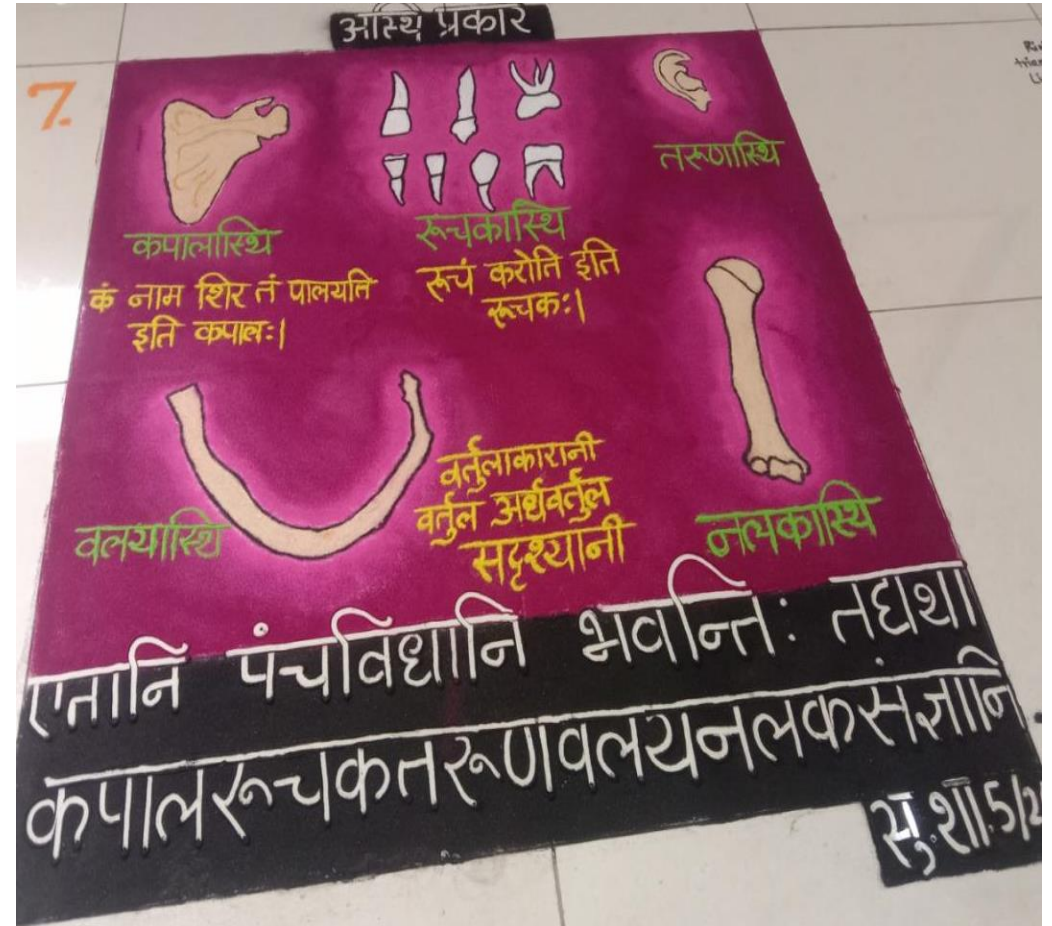 अस्थि प्रकार
7.
तरूणास्थि
कपालास्थि
कं नाम शिर तं पालयति
इति कपालः।
रूचकास्थि
रूचं करोति इति
रूचकः।
वलयास्थि
वर्तुलाकारानी
वर्तुल अर्धवर्तुल
सदृश्यानी
नलकास्थि
एतानि पंचविधानि भवन्तिः तद्यथा
कपालरूचकतरूणवलयनलकसंज्ञानि
सु.शा.5/2